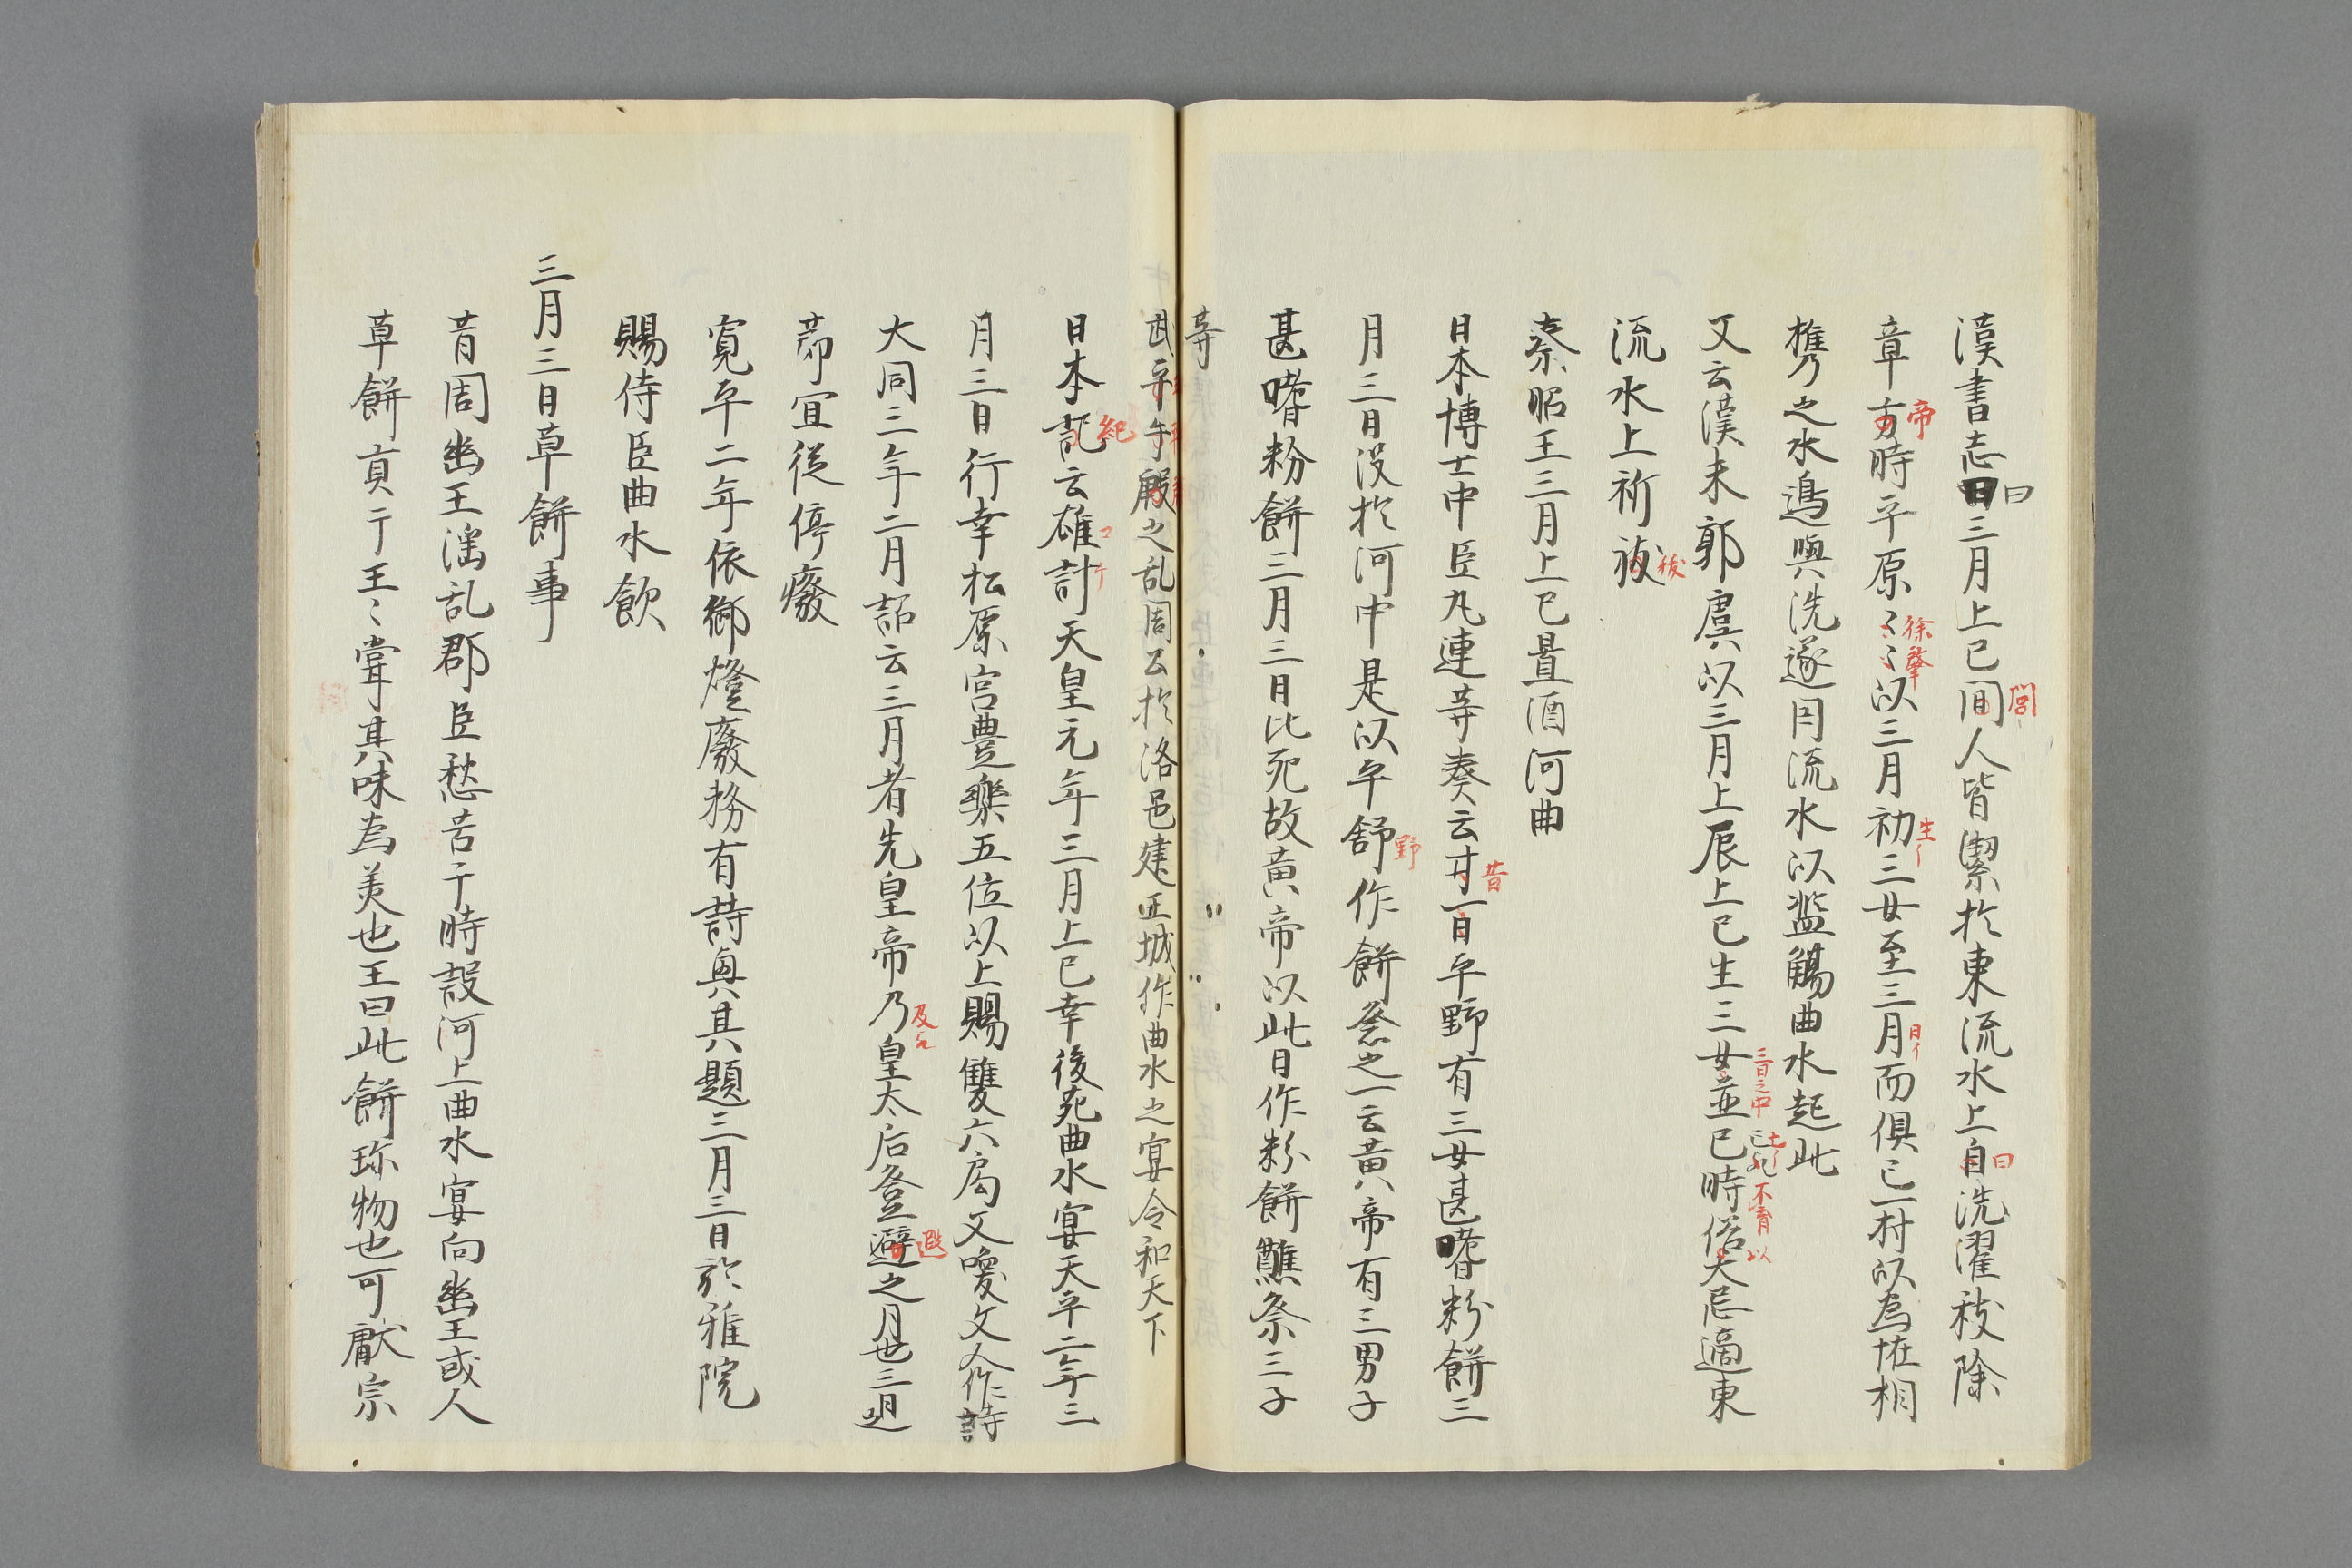 漢書志曰三月上巳間人皆潔於東流水上自洗濯祓除
章方時平原〻〻以三月初三女至三月而俱亡一村以為恠相
携之水邊與洗遂因流水以濫觴曲水起此
又云漢末郭虞以三月上辰上巳生三女並已時俗大忌適東
流水上祈祓
秦昭王三月上巳置酒河曲
日本博士中臣丸連等奏云昔一日平野有三女甚嗜粉餅三
月三日没於河中是以平舒作餅祭之一云黄帝有三男子
甚嗜粉餅三月三日比死故黄帝以此日作粉餅醮祭三子
等
武平午殿之乱周公於洛邑建正城作曲水之宴令和天下
日本記云雄計天皇元年三月上巳幸後苑曲水宴天平二年三
月三日行幸松原宮豊楽五位以上賜雙六局又喚文人作詩
大同三年二月詔云三月者先皇帝乃皇太后登避之月也三月
節宜従停廃
寛平二年依御燈廃務有詩興其題三月三日於雅院
賜侍臣曲水飲
三月三日草餅事
昔周幽王滛乱郡臣愁苦于時設河上曲水宴向幽王或人
草餅貢于王〻甞其味為美也王曰此餅珎物也可献宗
曰
閭
曰
帝
徐肇
生イ
日イ
三日之中
不育
以
祓
昔
野
紀
及
遐